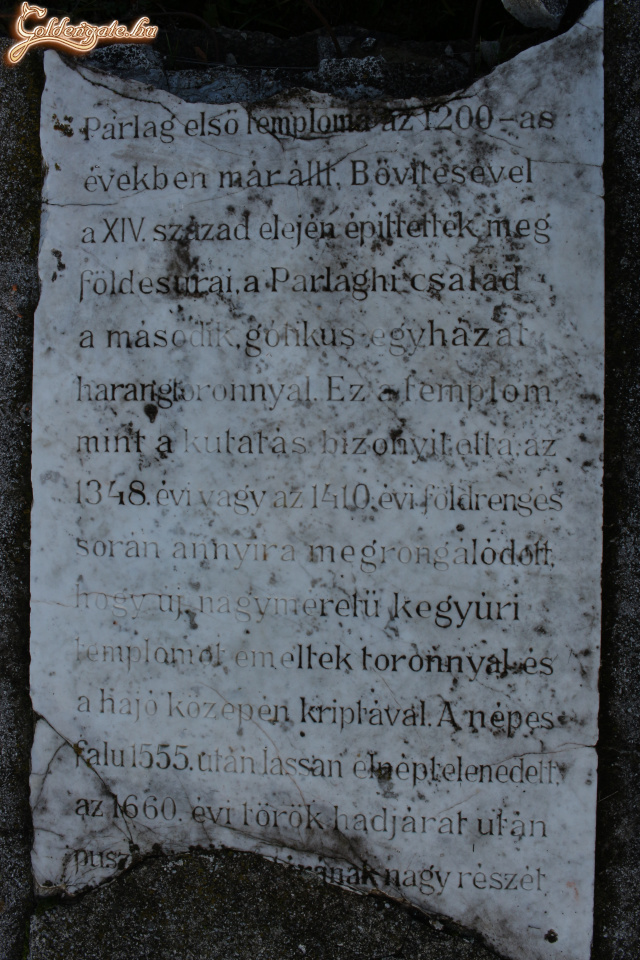 Goldengate.hu
Parlag első temploma az 1200-as
években már állt. Bővítésével
a XIV. század elején építtették meg
földesurai, a Parlaghi család
a második, gótikus egyházat
harangtoronnyal. Ez a templom,
mint a kutatás bizonyította, az
1348. évi vagy az 1410. évi földrengés
során annyira megrongálódott,
hogy új, nagyméretű kegyúri
templomot emeltek toronnyal és
a hajó közepén kriptával. A népes
falu 1555. után lassan elnéptelenedett,
az 1660. évi török hadjárat után
nagy részét